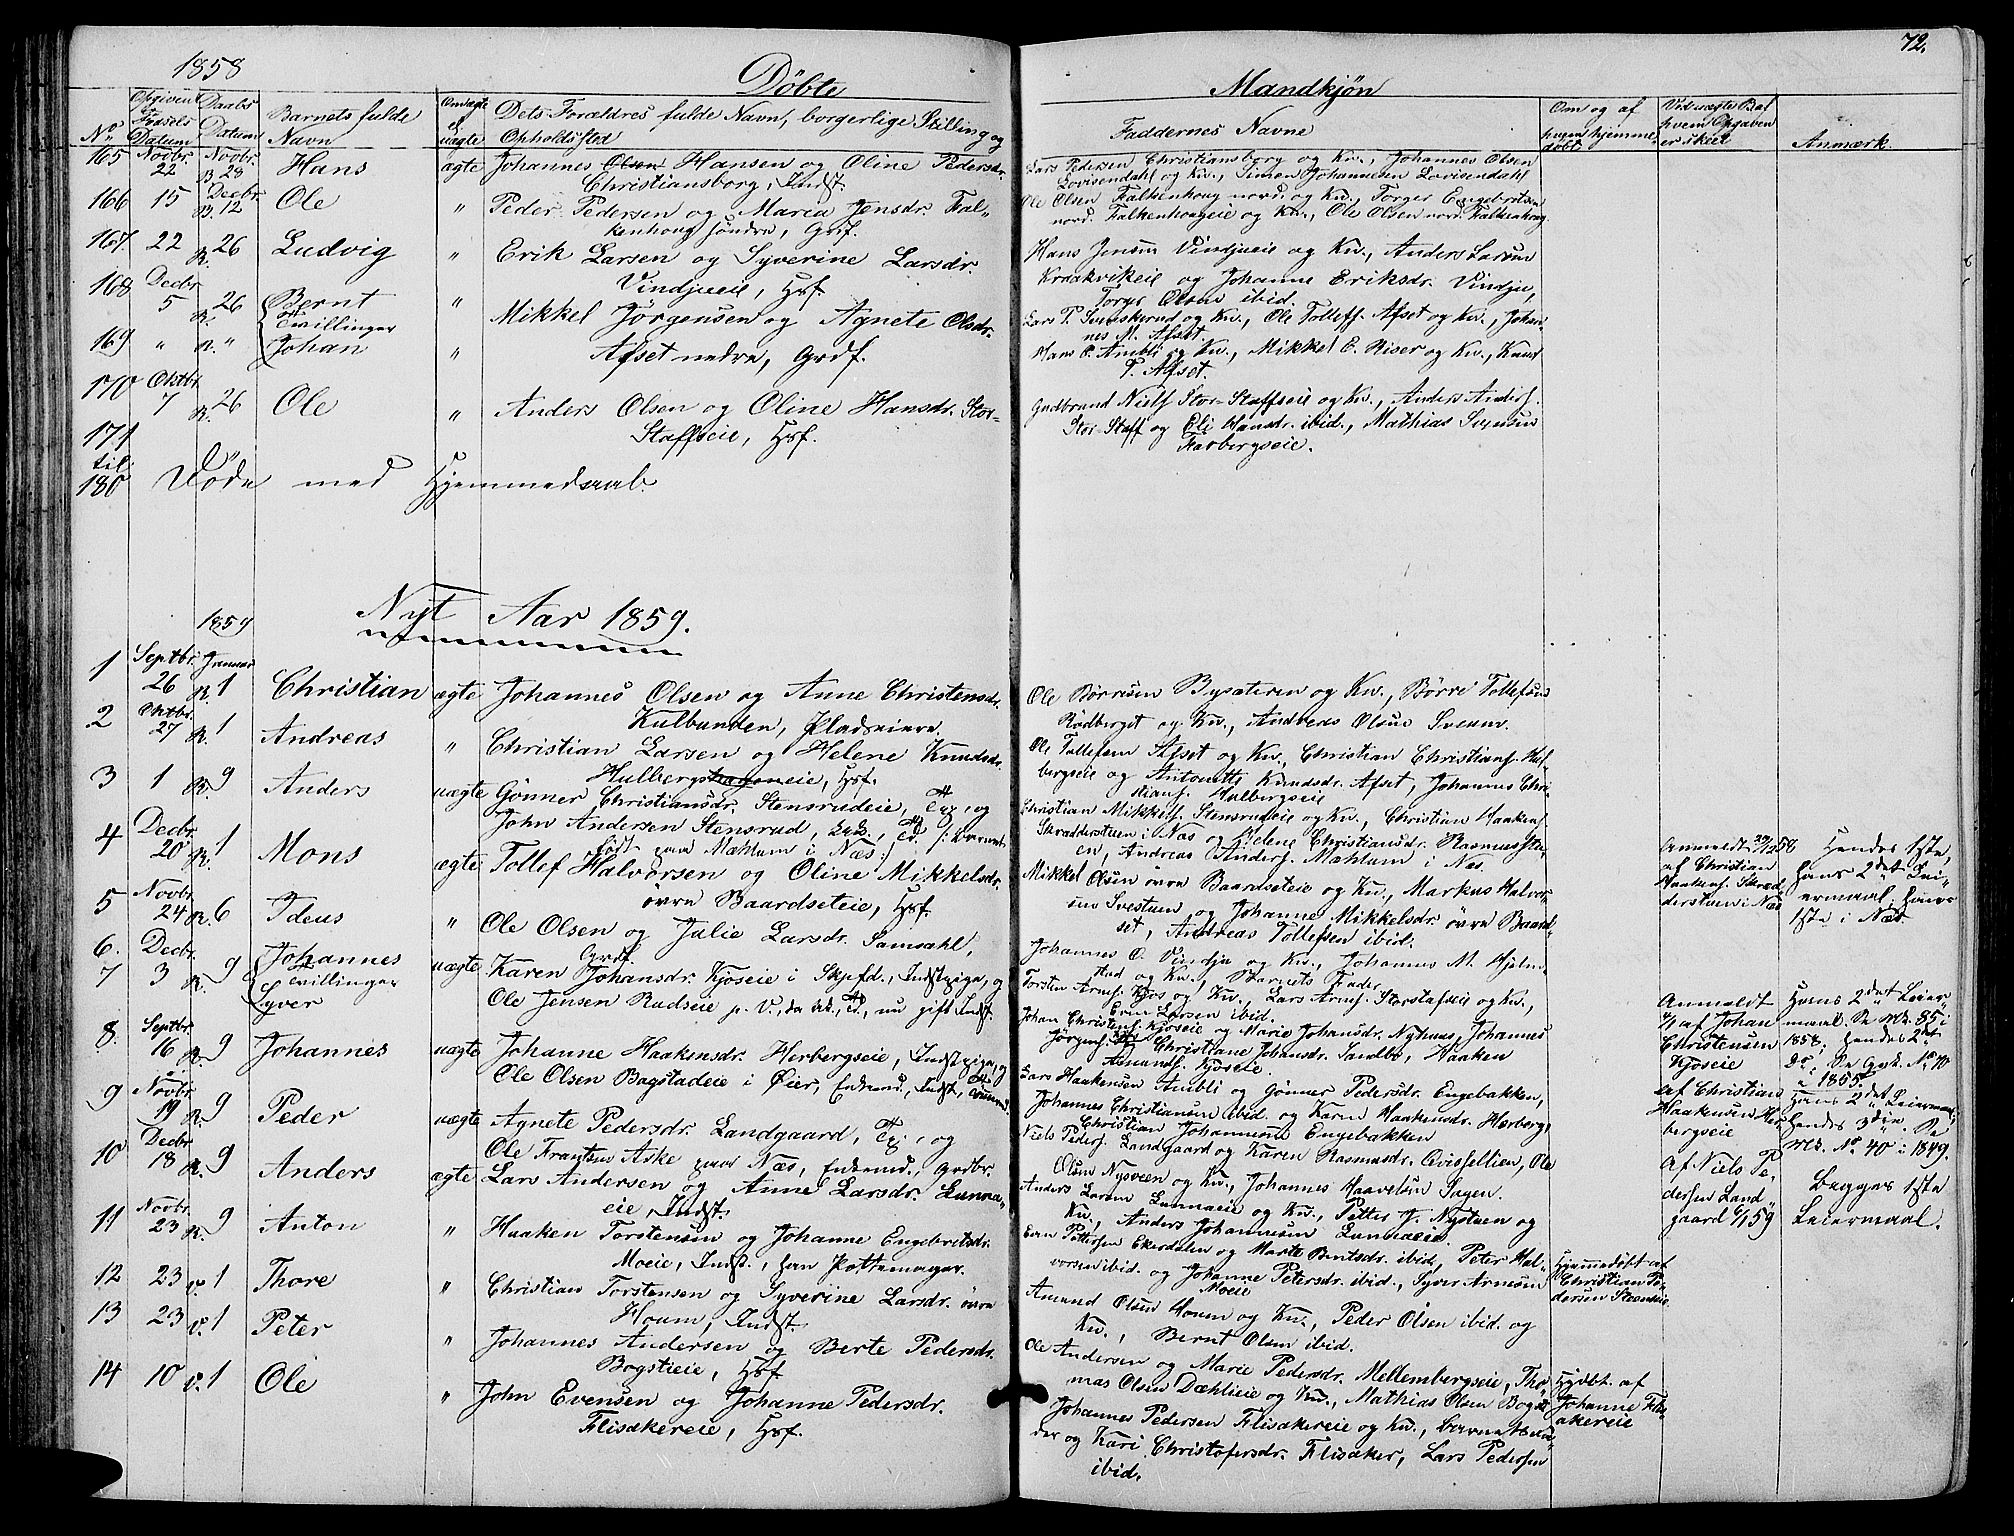 1858
Døbte
Mandkjøn
72.
No
Opgivent Fødsels Datum
Daabs Datum
Barnets fulde Navn
Om ægte ell. uægte
Dets Forældres fulde Navn, borgerlige Stilling og Opholdsted
Faddernes Navne
Om og af hvem hjemmedøbt
Ved uægte Bar hvem Opgaven er skeet
Anmærk.
165 Novbr. 22 Novbr. R. 28 Hans ægte Johannes Olsen Hansen og Oline Pedersdr.
Christiansborg, Indst.
Lars Pedersen Christiansborg og Kv., Johannes Olsen
Lovisendahl og Kv., Simen Johannesen Lovisendahl
166 15 Decbr. R. 12 Ole " Peder Pedersen og Maria Jensdr. Fal-
kenhoug søndre, Grdf.
Ole Olsen Falkenhoug nord. og Kv., Torger Engebritsen
nord. Falkenhougeie og Kv., Ole Olsen nord. Falkenhoug
167. 22 R. 26 Ludvig " Erik Larsen og Syverine Larsdr.
Vindjueie, Hsf.
Hans Jensen Vindjueie og Kv., Anders Larsen
Kraakvikeie og Johanne Eriksdr. Vindju,
Torger Olsen ibid.
168 Decbr. 5 R. 26 Bernt "
Tvillinger
Mikkel Jørgensen og Agnete Olsdr.
Lars P. Svenskerud og Kv., Ole Tollefs. Afset og Kv., Johan-
nes M. Afset.
169 " R. " Johan " Afset nedre, Grdf.
Hans E. Ambli og Kv., Mikkel E. Riser og Kv., Knud
P. Afset.
170 Oktbr. 7 R. 26 Ole " Anders Olsen og Oline Hansdr. Stor-
Staffseie, Hsf.
Gudbrand Niels Stor-Staffseie og Kv., Anders Anders.
Stor-Staff og Eli Hansdr. ibid., Mathias Svensen
Farbergseie.
171
til
180 Døde med Hjemmedaab.
Nyt Aar 1859.
1859
1 Septbr. 26 Januar R. 1 Christian ægte Johannes Olsen og Anne Christensdr.
Kulbunden, Pladseiere.
Ole Børresen Bysæteren og Kv., Børre Tollefsen
Rødberget og Kv., Andreas Olsen Sveum.
2 Oktbr. 27 R. 1 Andreas " Christian Larsen og Helene Knudsdr.
Hulbergshageneie, Hsf.
Ole Tollefsen Afset og Kv., Christian Christians. Hul-
bergseie og Antonette Knudsdr. Afset, Johannes Chri-
stians. Hulbergseie
3 1 R. 9 Anders uægte Gønner Christiansdr. Stensrudeie, Tp., og
John Andersen Stensrud, Td. /: Barnet
født paa Mæhlum i Næs :/
Christian Mikkels. Stensrudeie og Kv., Christian Haakens.
Skræddersteen i Næs og Helene Christiansdr. Rasmusste-
en, Andreas Anders. Mæhlum i Næs.
Anmeldt 29/12 58
af Christian
Haakens. Skræd-
dersteen i Næs
Hendes 1ste,
hans 2det Lei-
ermaal. Hans
1ste i Næs
4 Decbr. 20 R. 1 Mons ægte Tollef Halvorsen og Oline Mikkelsdr.
øvre Baardseteie, Hsf.
Mikkel Olsen øvre Baardseteie og Kv., Markus Halvor-
sen Svesteen og Johanne Mikkelsdr. øvre Baard-
set, Andreas Tollefsen ibid.
5 Novbr. 24 R. 6 Ideus " Ole Olsen og Julie Larsdr. Samdahl,
Grdf.
Johannes O. Vindju og Kv., Johannes M. Hjelm-
stad og Kv., Barnets Fader
6. Decbr. Johannes uægte
Tvillinger
7 3 R. 9 Syver
Karen Johansdr. Kjoseie i Skjefd., Indstpige, og
Ole Jensen Rudseie p. V., da Ud., Td., nu gift Indst.
Torsten Arnes. Kjos og Kv., Lars Arnes. Storstafseie og Kv.,
Even Larsen ibid.
Johan Christens. Kjoseie og Marie Johansdr. Nyhuus, Johannes
Jørgens. og Christiane Johansdr. Sandbo, Haaken
Amunds. Kjoseie.
Anmeldt
af Johan
Christensen
Kjoseie
Hans 2det Leier-
maal. Se Mk. 85 i
1858, hendes 2det
Do, Se Qvk. No 10
i 1855.
8. Septbr. 16 R. 9 Johannes uægte Johanne Haakensdr. Herbergseie, Indstpige, og
Ole Olsen Bagstadeie i Øier, Enkemd., Indst.
Lars Haakensen Ambli og Gønner Pedersdr. Engebakken,
Johannes Christiansen ibid. og Karen Haakensdr. Herberg,
Christian Johannesen Engebakken
af Christian
Haakensen Her-
bergseie
Hans 2det Leiermaal,
hendes 3die. Se
Mk. No 40 i 1849.
9 Novbr. 19 R. 9 Peder uægte Agnete Pedersdr. Landgaard, Tp., og
Ole Frantsen Aske paa Næs, Enkemd., Grdbr.
Niels Peders. Landgaard og Karen Rasmusdr. Qvisellien, Ole
Olsen Nysveen og Kv., Johannes Haavelsen Sagen.
Af Niels Pe-
dersen Land-
gaard 6/1 59
Begges 1ste
Leiermaal.
10 Decbr. 18 R. 9 Anders ægte Lars Andersen og Anne Larsdr. Lunna-
eie, Indst.
Anders Larsen Lunnaeie og Kv., Petter J. Nysteen og
Kv., Anders Johannesen Lunnaeie
11 Novbr. 23 R. 9 Anton " Haaken Torstensen og Johanne Engebretsdr.
Moeie, Indst., han Pottemager.
Even Pettersen Ekerdalen og Marte Berntsdr. ibid, Peter Hal-
vorsen ibid. og Johanne Petersdr. ibid., Syver Arnesen
Moeie
12 23 V. 1 Thore " Christian Torstensen og Syverine Larsdr. øvre
Houm, Indst.
Amund Olsen Houm og Kv., Peder Olsen ibid. og
Kv., Bernt Olsen ibid.
Hjemmedøbt af
Christian Pe-
dersen Steenseie
13 23 V. 1 Peter " Johannes Andersen og Berte Pedersdr.
Bogstieie, Hsf.
Ole Andersen og Marie Pedersdr. Mellembergseie, Tho-
mas Olsen Dæhlieie og Kv., Mathias Olsen Bogsti
14 10 V. 1 Ole " John Evensen og Johanne Pedersdr.
Flisakereie, Hsf.
Johannes Pedersen Flisakereie og Kv.,
og Kari Christofersdr. Flisaker, Lars Pedersen
ibid.
Hjdbt. af
Johanne Fli-
sakereie